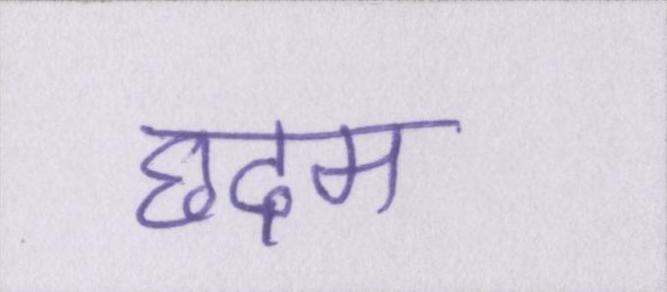 छदम